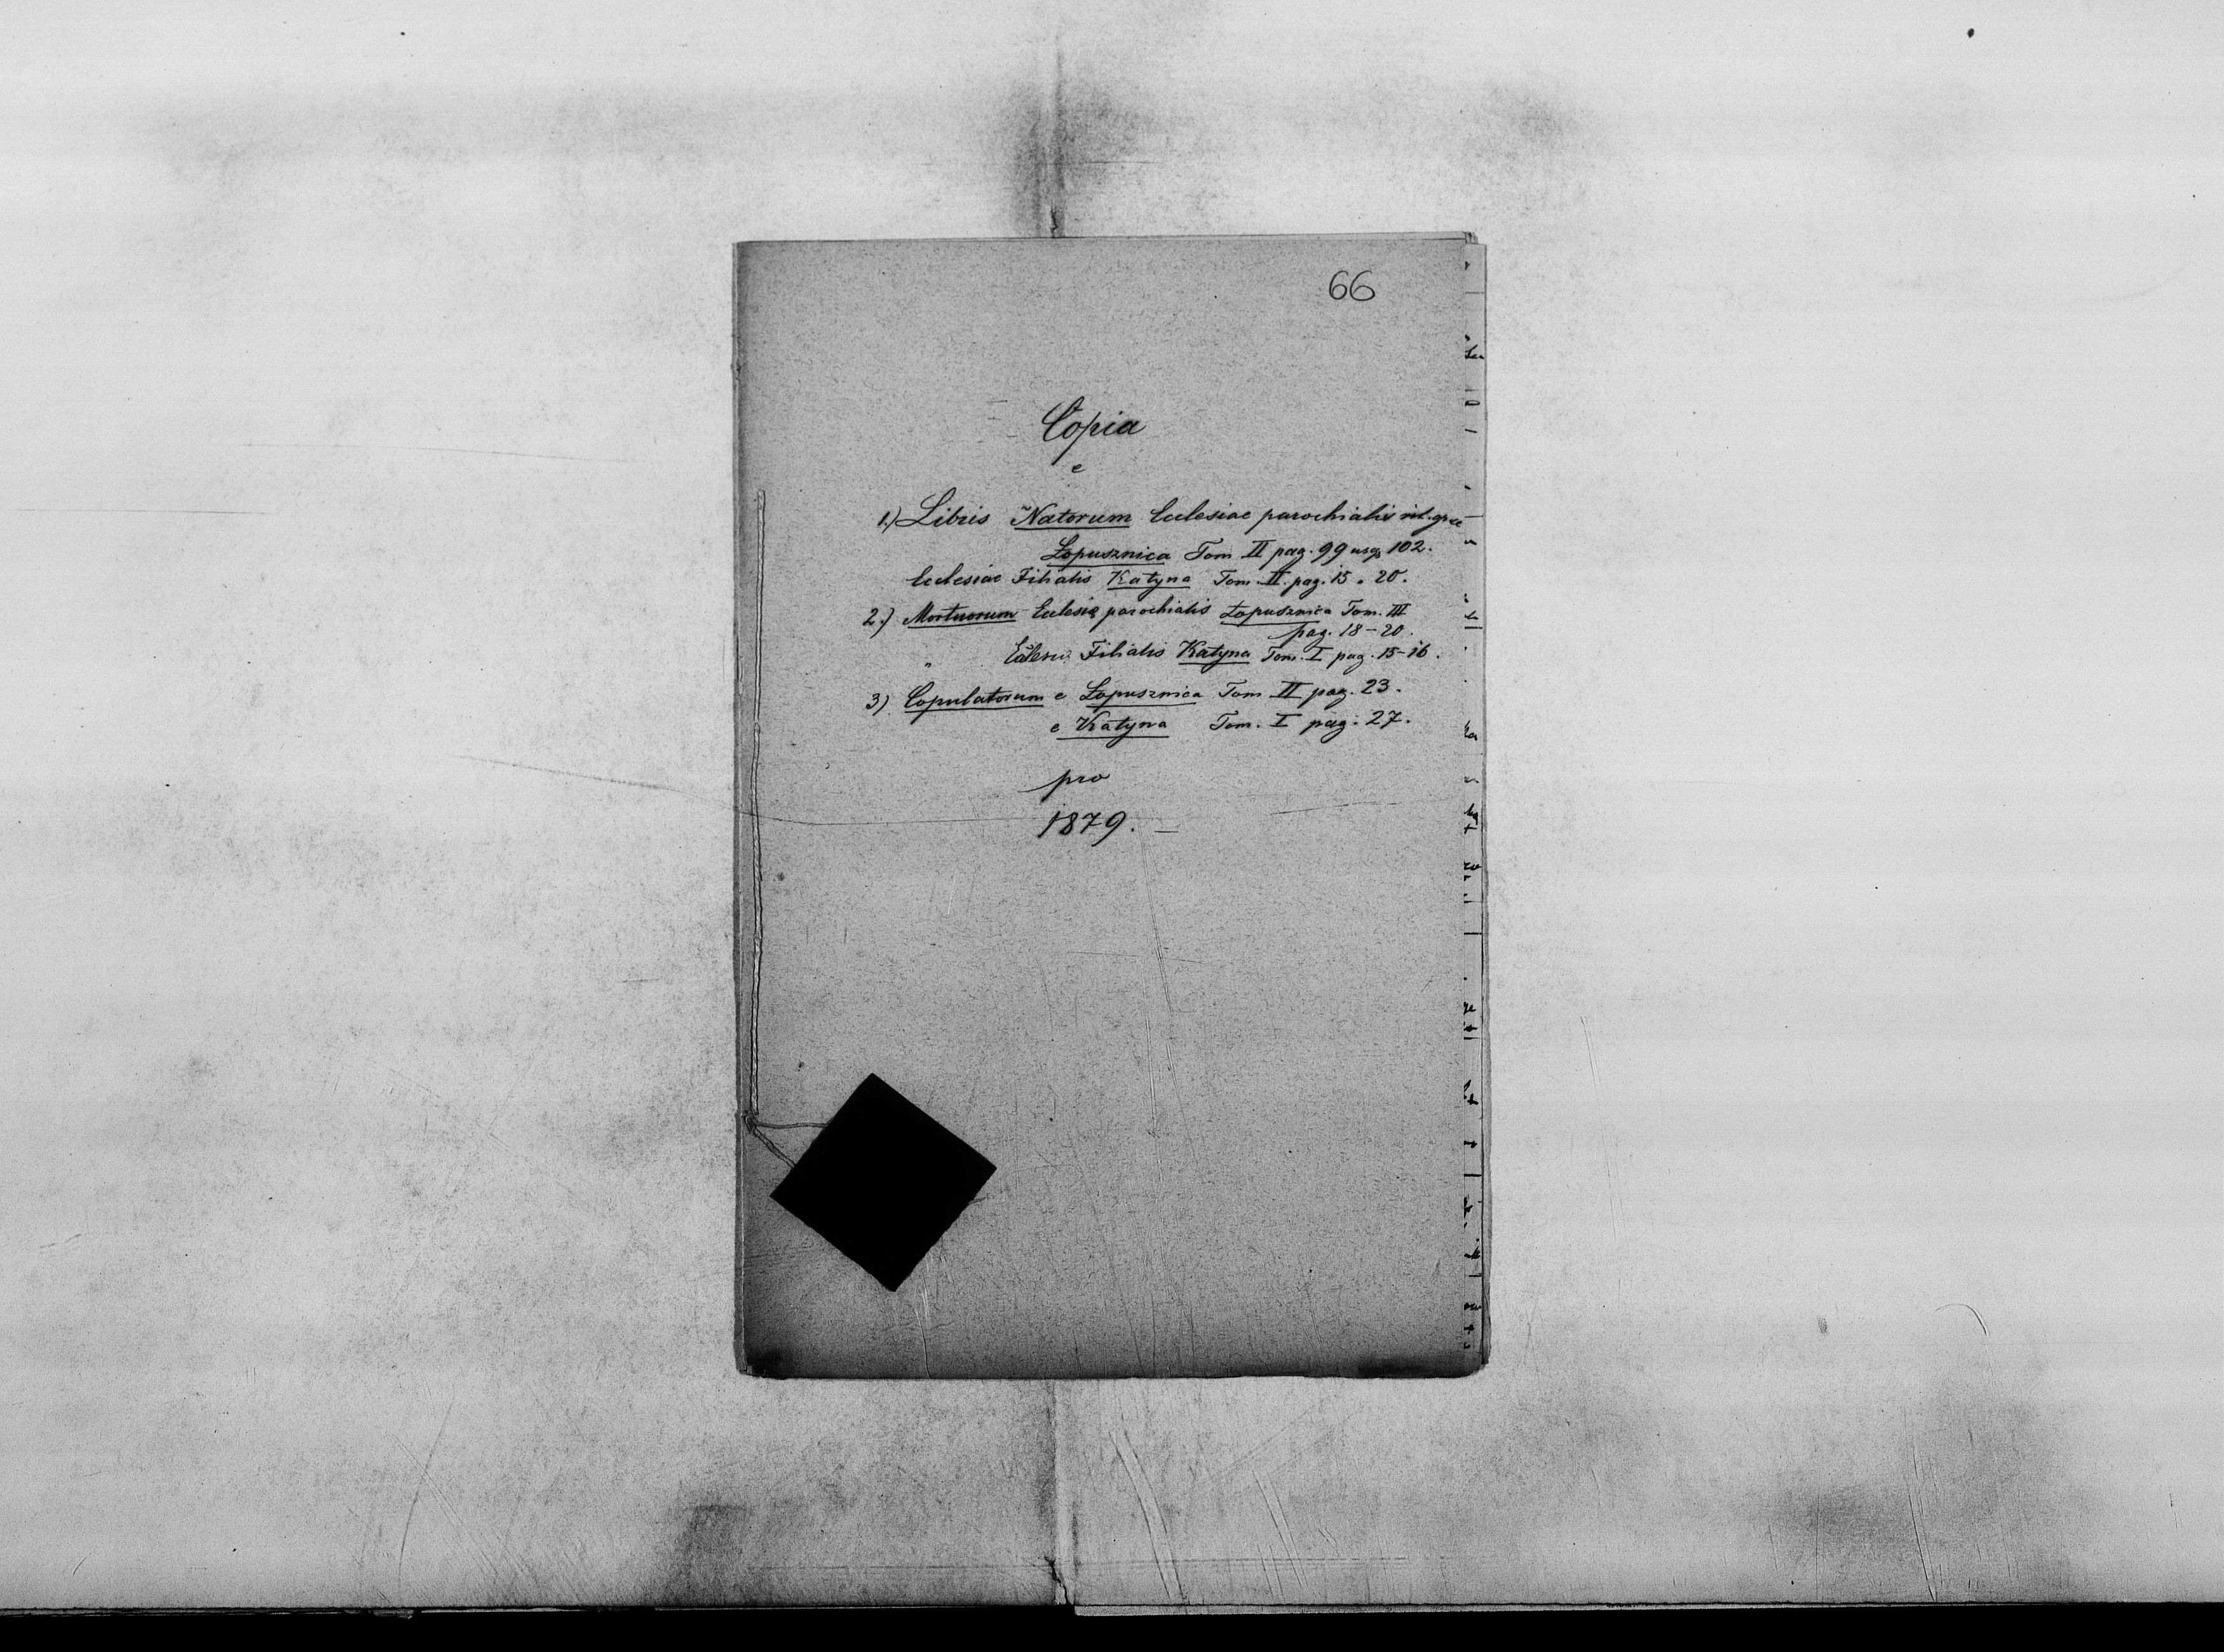 66
Copia
e
1.) Libris Natorum Ecclesiae parochialis rit. grae
Łopusznica Tom II pag. 99 usq 102.
Ecclesiae Filialis Katyna Tom. II. pag. 15 " 20.
2.) Mortuorum Eclesię parochialis Łopusznica Tom. III
pag. 18-20.
" Filialis Katyna Tom. I pag. 15-16.
3) Copulatorum e Łopusznica Tom II pag. 23.
e Katyna Tom. I pag. 27.
pro
1879. —